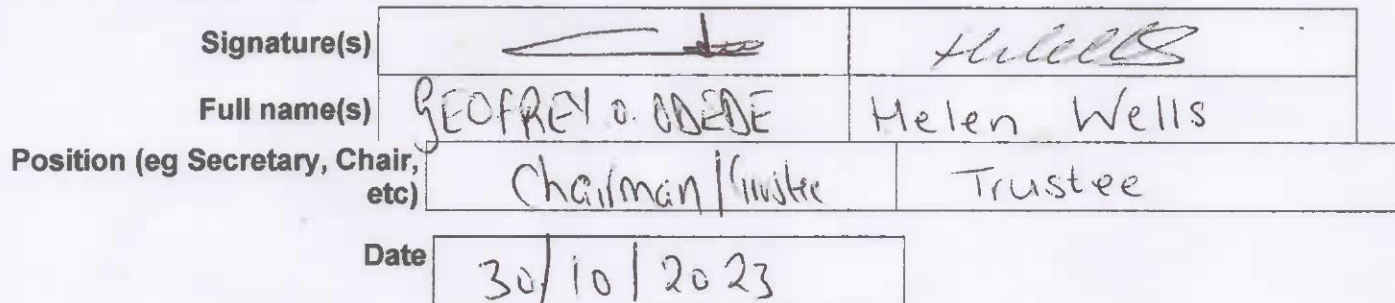 Signature(s) HWells
Full name(s) GEOFREY O. ODEDE Helen Wells
Position (eg Secretary, Chair,
etc) Chairman/Trustee Trustee
Date 30/10/2023